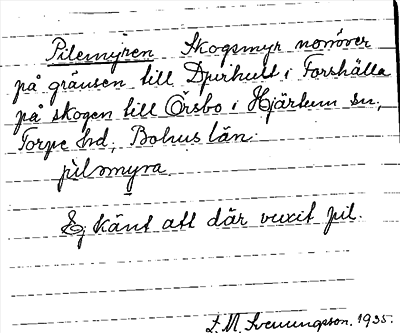 Pilemyren Skogsmyr norröver
på gränsen till Djurhult i Forshälla
på skogen till Örsbo i Hjärtum sn,
Torpe hd, Bohus län.
pìlsmyra.
Ej känt att där vuxit pil.
L. M. Svenungsson. 1935.